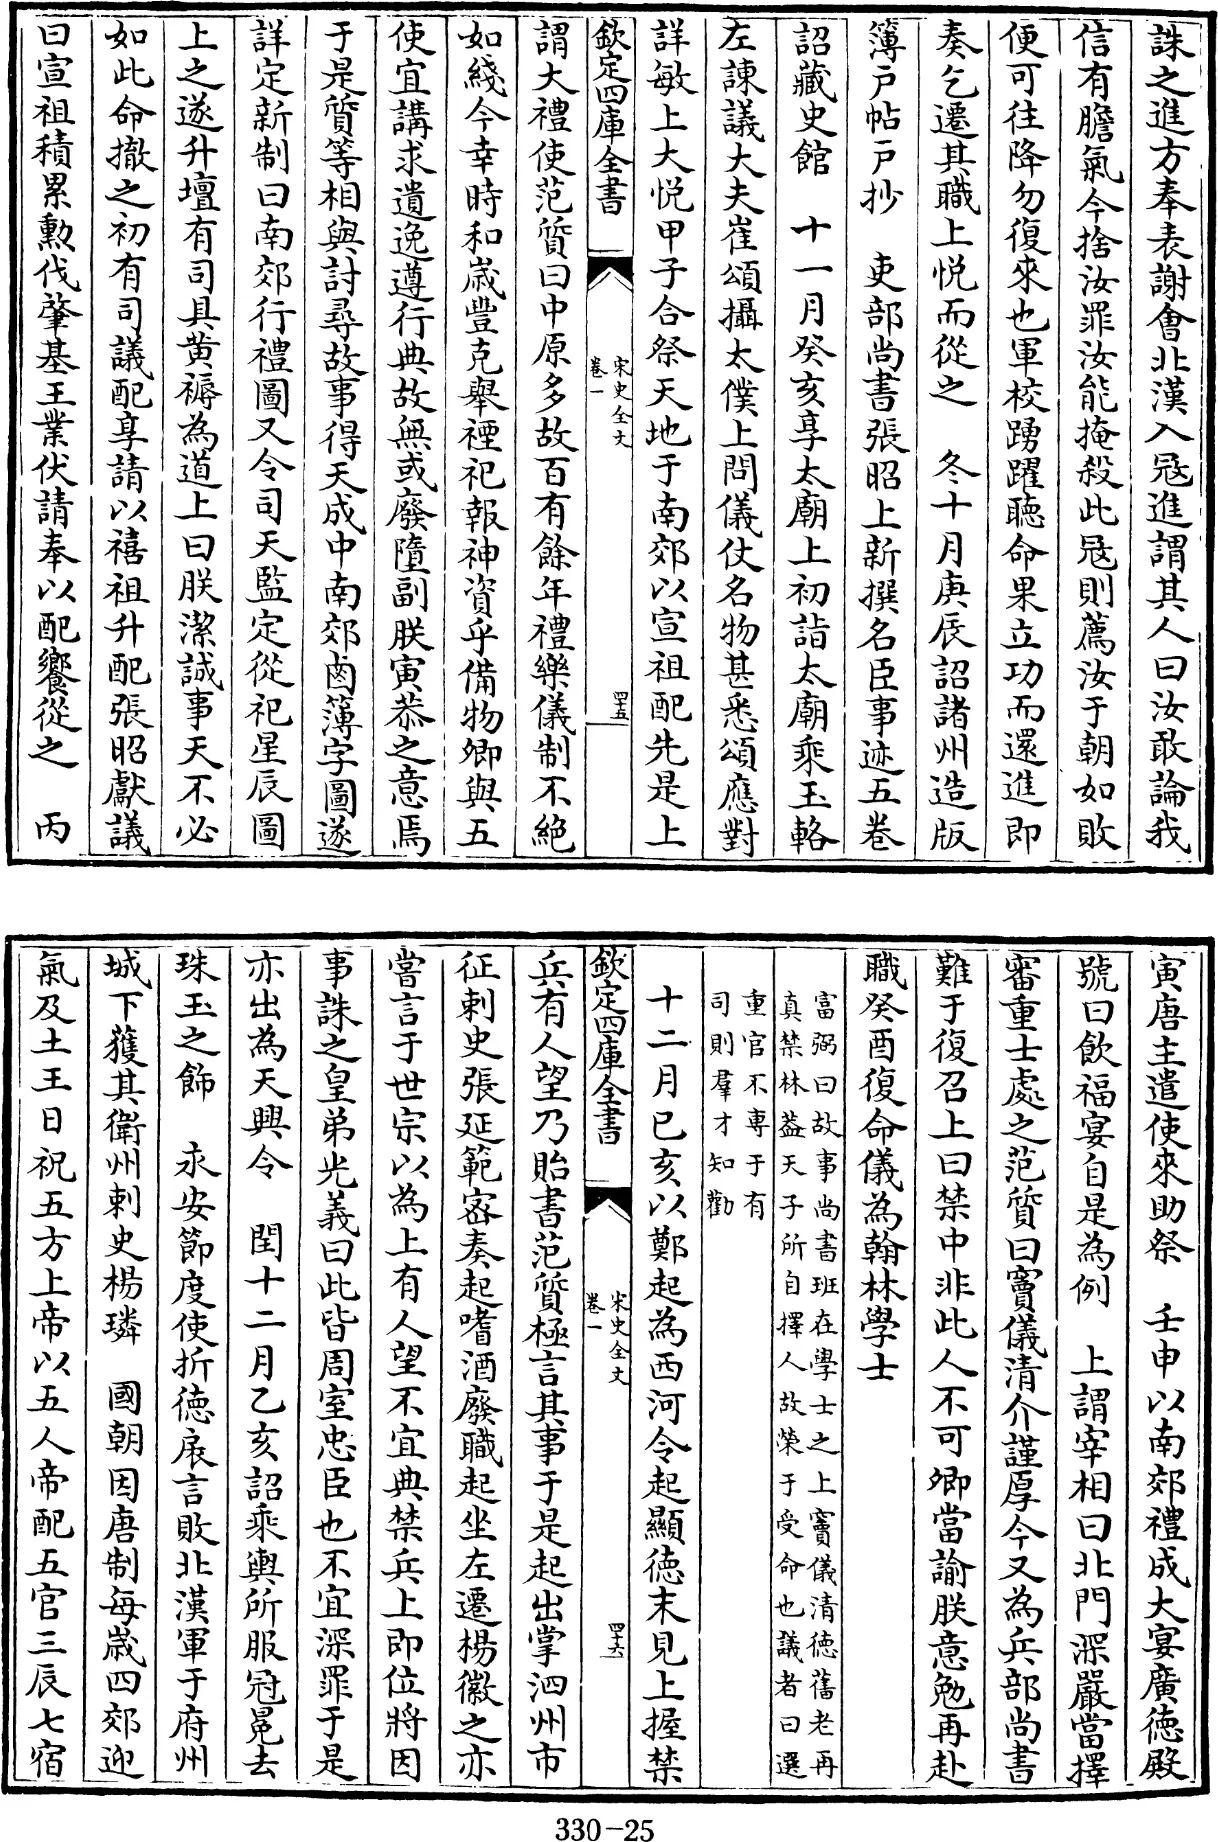 誅之進方奉表謝會北漢入冦進謂其人曰汝敢論我
信有膽氣今捨汝罪汝能掩殺此冦則薦汝于朝如敗
便可往降勿復來也軍校踴躍聽命果立功而還進即
奏乞遷其職上悦而從之　冬十月庚辰詔諸州造版
簿戸帖戸抄　吏部尚書張昭上新撰名臣事迹五卷
詔藏史館　十一月癸亥享太廟上初詣太廟乘玉輅
左諫議大夫崔頌攝太僕上問儀仗名物甚悉頌應對
詳敏上大悦甲子合祭天地于南郊以宣祖配先是上
欽定四庫全書　宋史全文卷一　四十五
謂大禮使范質曰中原多故百有餘年禮樂儀制不絶
如綫今幸時和嵗豐克舉禋祀報神資乎備物卿與五
使宜講求遺逸遵行典故無或廢墮副朕寅恭之意焉
于是質等相與討尋故事得天成中南郊鹵簿字圖遂
詳定新制曰南郊行禮圖又令司天監定從祀星辰圖
上之遂升壇有司具黄褥為道上曰朕潔誠事天不必
如此命撤之初有司議配享請以禧祖升配張昭獻議
曰宣祖積累勲伐肇基王業伏請奉以配饗從之　丙
寅唐主遣使來助祭　壬申以南郊禮成大宴廣徳殿
號曰飲福宴自是為例　上謂宰相曰北門深嚴當擇
審重士處之范質曰竇儀清介謹厚今又為兵部尚書
難于復召上曰禁中非此人不可卿當諭朕意勉再赴
職癸酉復命儀為翰林學士
富弼曰故事尚書班在學士之上竇儀清徳舊老再
真禁林葢天子所自擇人故榮于受命也議者曰選
重官不専于有
司則羣才知勸
十二月已亥以鄭起為西河令起顯徳末見上握禁
欽定四庫全書　宋史全文卷一　四十六
兵有人望乃貽書范質極言其事于是起出掌泗州市
征刺史張延範宻奏起嗜酒廢職起坐左遷楊徽之亦
嘗言于世宗以為上有人望不宜典禁兵上即位將因
事誅之皇弟光義曰此皆周室忠臣也不宜深罪于是
亦出為天興令　閏十二月乙亥詔乘輿所服冠冕去
珠玉之飾　永安節度使折徳扆言敗北漢軍于府州
城下獲其衛州刺史楊璘　國朝因唐制每嵗四郊迎
氣及土王日祝五方上帝以五人帝配五官三辰七宿
330-25